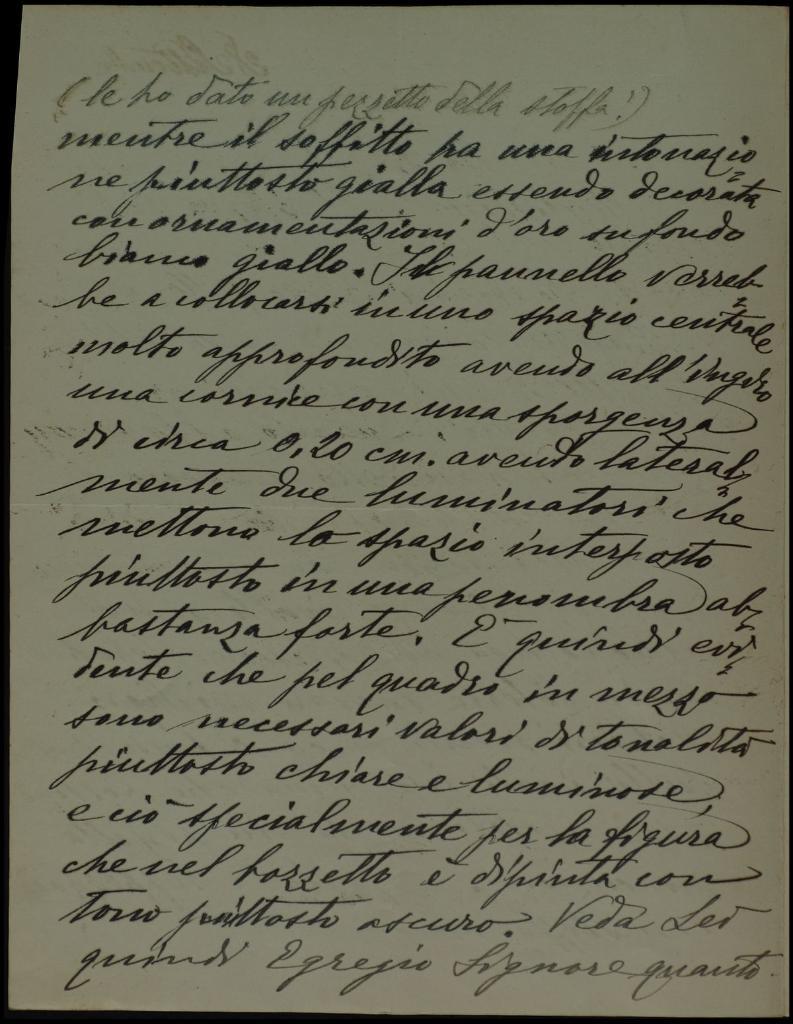 (le ho dato un pezzetto della stoffa!)
mentre il soffitto ha una intonazio=
ne piuttosto gialla essendo decorata
con ornamentazioni d'oro su fondo
bianco giallo. Il pannello verreb=
be a collocarsi in uno spazio centrale
molto approfondito avendo all'ingiro
una cornice con una sporgenza
di circa 0,20 cm. avendo lateral=
mente due luminatori che
mettono lo spazio interposto
piuttosto in una penombra ab=
bastanza forte. E' quindi evi=
dente che pel quadro in mezzo
sono necessari valori di tonalità
piuttosto chiare e luminose,
e ciò specialmente per la figura
che nel bozzetto è dipinta con
tono piuttosto oscuro. Veda Lei
quindi Egregio Signore quanto